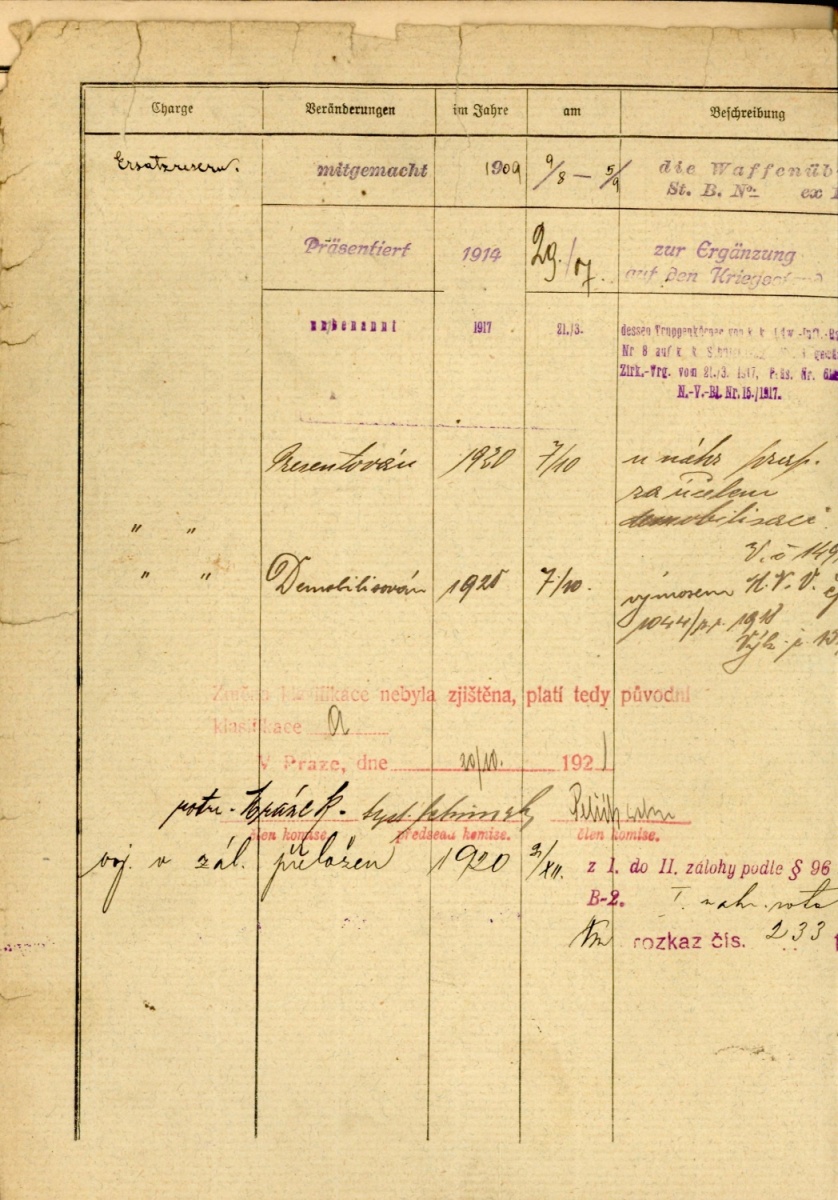 Charge Veränderungen im Jahre am Beschreibung
Ersatzreserv. mitgemacht 1909 9/8 — 5/9 die Waffenüb
St. B. No: ex
Präsentiert 1914 29./7. zur Ergänzung
auf den Kriegsstand
umbenannt 1917 21./3. dessen Truppenkörper von k. k. Ldw.-Inft.-Rg
Nr 8 auf k. k.
Zirk.-Vrg. vom 21./3. 1917, Präs. Nr.
N.-V.-Bl. Nr. 15./1917.
Presentován 1920 7/10 u náhr. prap.
za účelem
" " demobilisace
V. č 149
" " Demobilisován 1920 7/10. výnosem N. V. V.
1044/pr. 1918
Změna klasifikace nebyla zjištěna, platí tedy původní
klasifikace A
V Praze, dne 20/10. 1921
člen komise. předseda komise. člen komise.
voj. v zál. přeložen 1920 31/XII. z I. do II. zálohy podle § 96
B-2. I. náhr. rota
rozkaz čís. 233